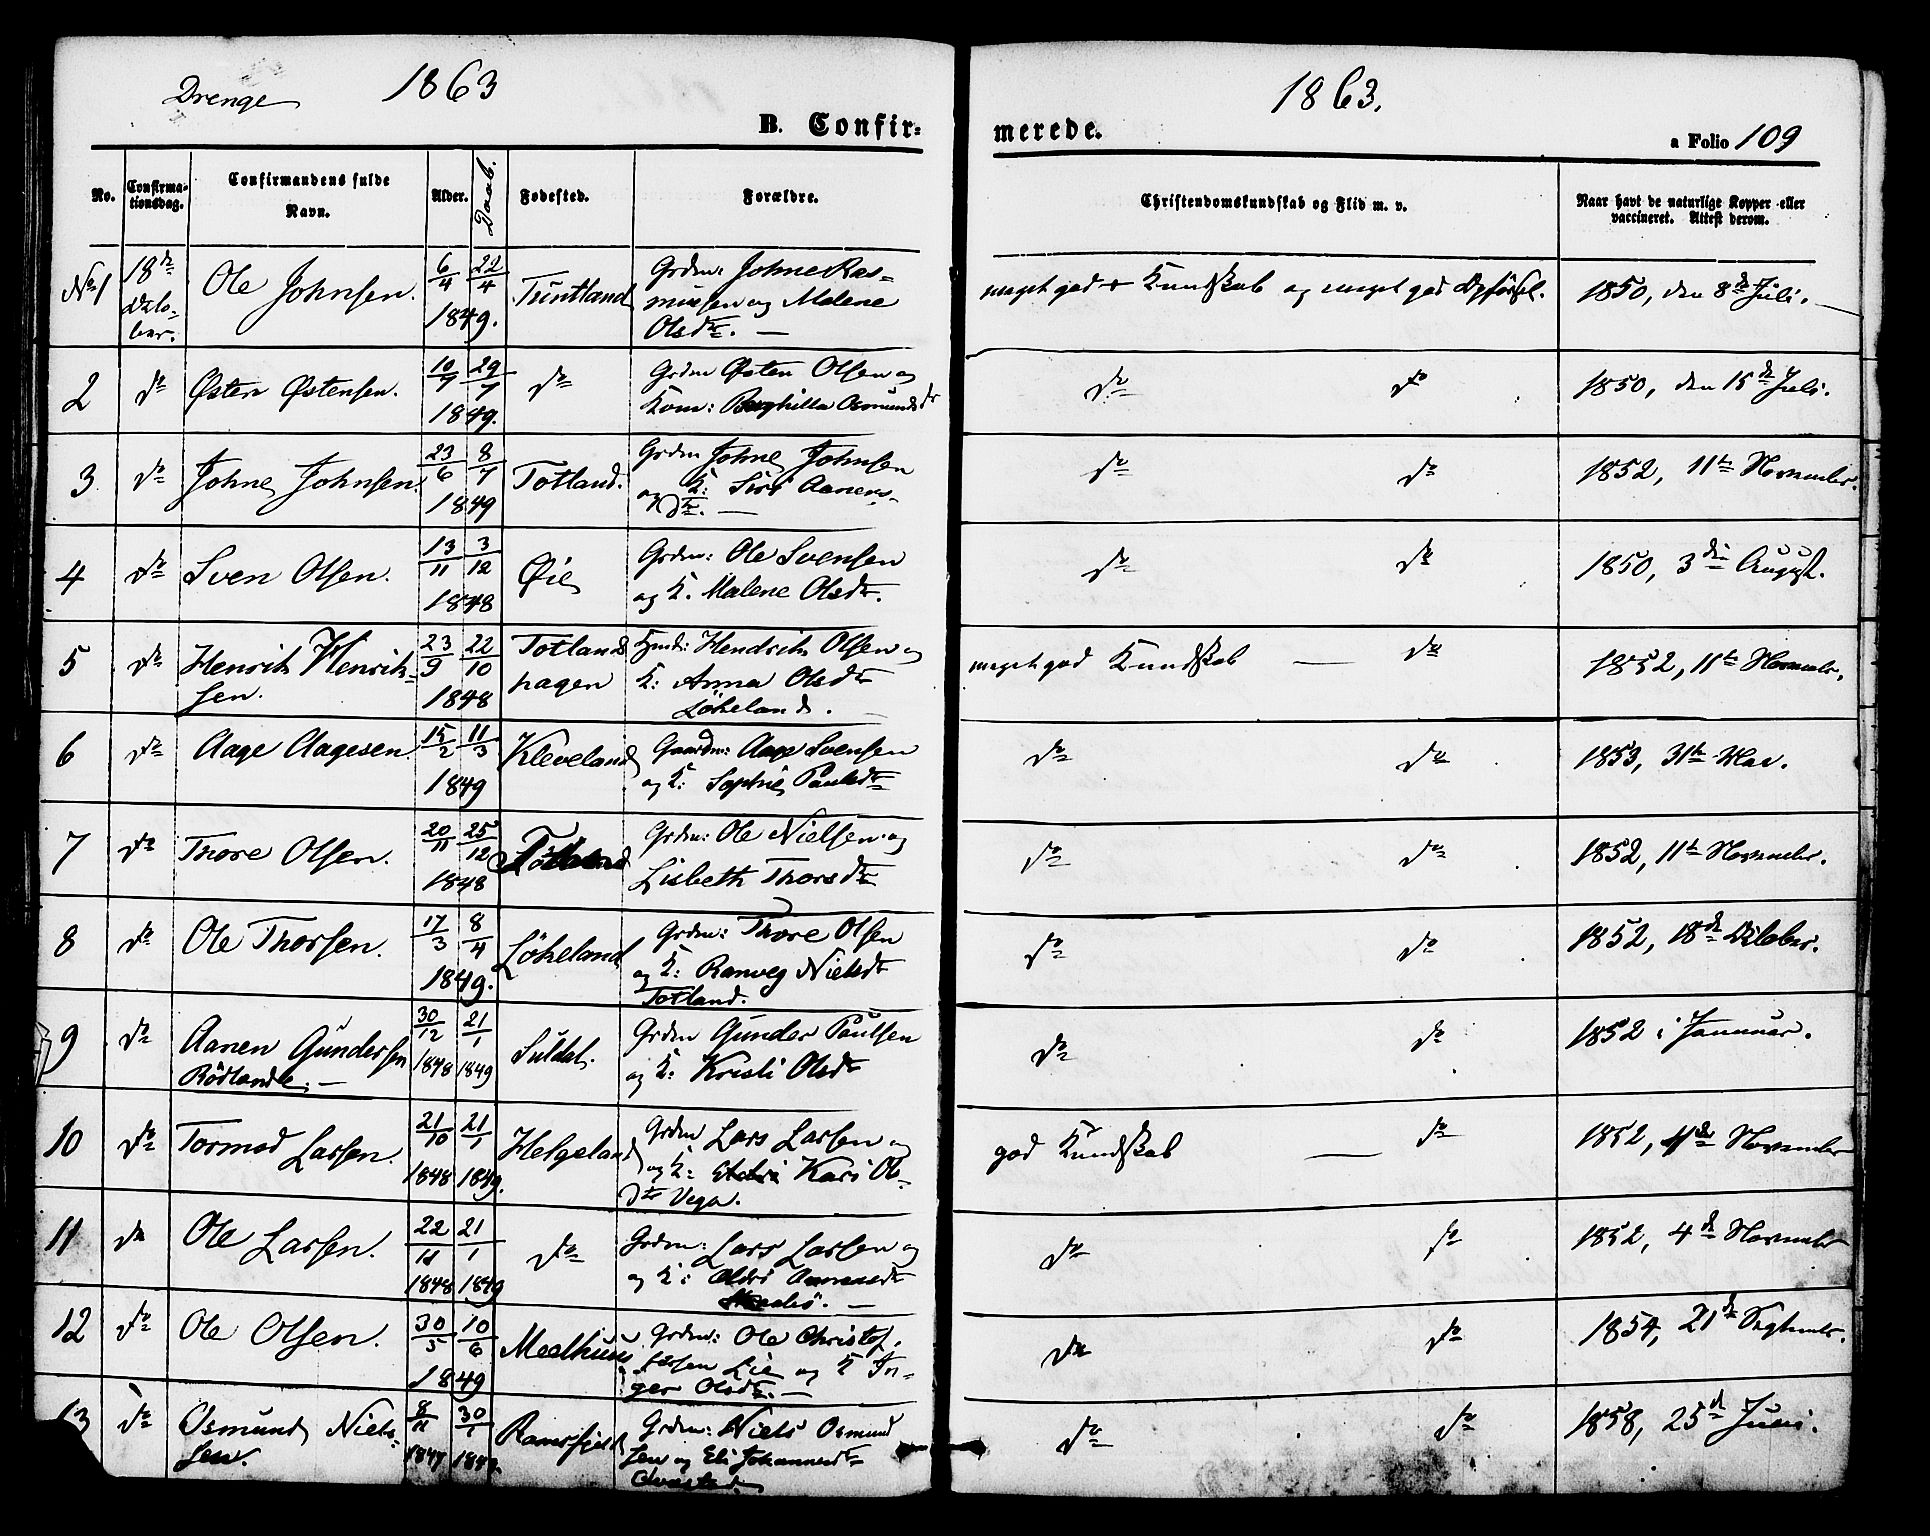 Drenge 1863
B. Confir-
No. Confirmationsdag. Confirmandens fulde Navn. Alder. Daab. Fødested. Forældre.
No 1 18de Octo-ber. Ole Johnsen. 6/4 22/4 1849. Tuntland Grdm: Johne Ras-
mussen og Malene
Olsdtr. —
2 do Østen Østensen. 10/7 29/7 1849. do Grdm Østen Olsen og
Kone: Berghilla Osmundsdtr
3 do Johne Johnsen. 23/6 8/7 1849 Totland. Grdm Johne Johnsen
og K: Siri Aaners-
dtr. —
4 do Sven Olsen. 13/11 3/12 1848 Øie Grdm: Ole Svensen
og K. Malene Olsdtr.
5 do Henrik Henrik-
sen. 23/9 22/10 1848 Totlands
hagen Hendrik Olsen og
K: Anna Olsdtr
Løkeland.
6 do Aage Aagesen. 15/2 11/3 1849 Kleveland Gaardm: Aage Svensen
og K: Sophie Paulsdtr
7 do Thore Olsen. 20/11 25/12 1848 Grdm: Ole Nielsen og
Lisbeth Thorsdtr
8 do Ole Thorsen. 17/3 8/4 1849. Løkeland Grdm: Thore Olsen
og K: Ranveg Nielsdtr
Totland.
9 do Aanen Gundersen
Rødland 30/12 1848 21/1 1849 Suldal. Grdm Gunder Paulsen
og K: Kristi Olsdtr
10 do Tormod Larsen. 21/10 1848 21/1 1849. Helgeland Grdm Lars Larsen og
og K: Kari Ols-
dtr Vega.
11 do Ole Larsen. 22/11 1848 21/1 1849 do Grdm: Lars Larsen og
og K:
12 do Ole Olsen. 30/5 10/6 1849 Meelhuus Grdm: Ole Christof-
fersen Lie og K In-
ger Olsdtr. —
13 do Osmund Niel-
sen. 8/11 1847 30/1 Ramsfjeld Grdm: Niels Osmund
sen og Eli Johannesdtr
1863.
merede. a Folio 109
Christendomskundskab og Flid m. v. Naar havt de naturlige Kopper eller
vaccineret. Attest derom.
meget god Kundskab og meget god Opførsel. 1850, den 8de Juli. —
do do 1850, den 15de Juli.
do do 1852, 11te November.
do do 1850, 3die August.
meget god Kundskab — do 1852, 11te Novembr.
do do 1853, 31te Mai.
do do 1852, 11te November.
do do 1852, 18de October.
do do 1852 i Januar.
god Kundskab — do 1852, November
do do 1852, 4de November
do do 1854, 21de Septembr.
do do 1858, 25de Juli.